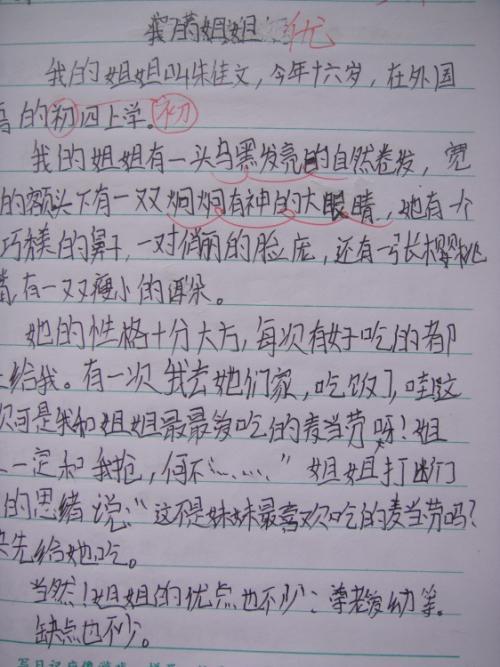 我的姐姐 优
我的姐姐叫朱佳文，今年十六岁，在外国
语的初四上学。初
我的姐姐有一头乌黑发亮的自然卷发，宽
的额头下有一双炯炯有神的大眼睛，她有一个
巧美的鼻子，一对俏丽的脸庞，还有一张樱桃
嘴，有一双瘦小的耳朵。
她的性格十分大方，每次有好吃的都
给我。有一次我去她们家，吃饭了，哇这
次可是我和姐姐最最爱吃的麦当劳呀！姐
一定和我抢，何不……”姐姐打断了
的思绪说：“这不是妹妹最喜欢吃的麦当劳吗？
快先给她吃。
当然！姐姐的优点也不少：尊老爱幼等。
缺点也不少。